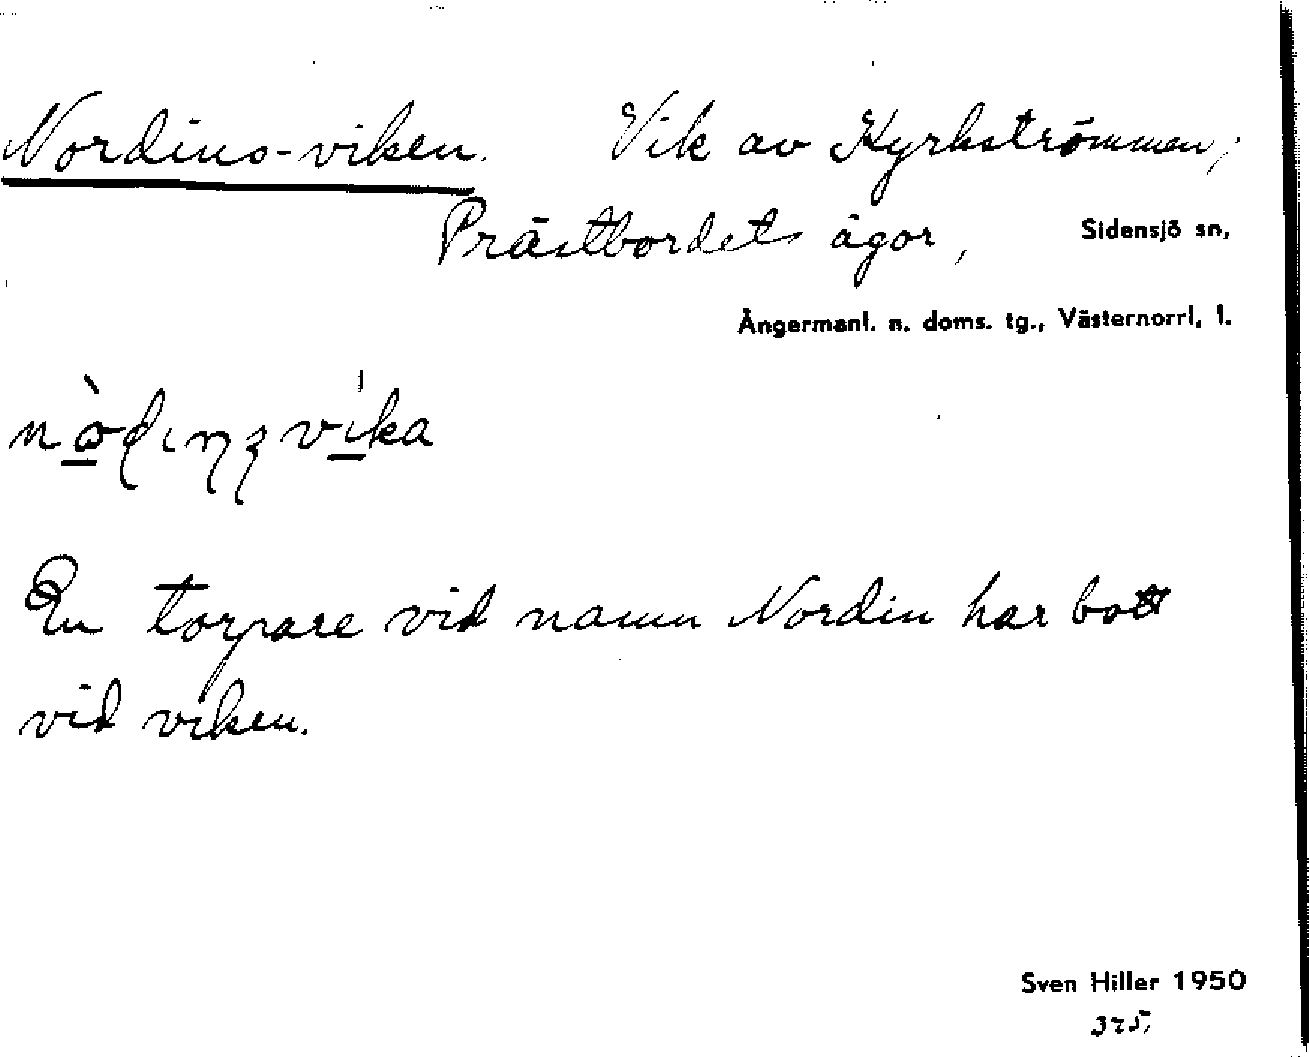 Nordins-viken. Vik av Kyrkströmmen;
Prästbordets ägor, Sidensjö sn,
Ångermanl. n. doms. tg., Västernorrl. l.
En torpare vid namn Nordin har bott
vid viken.
Sven Hiller 1950
325